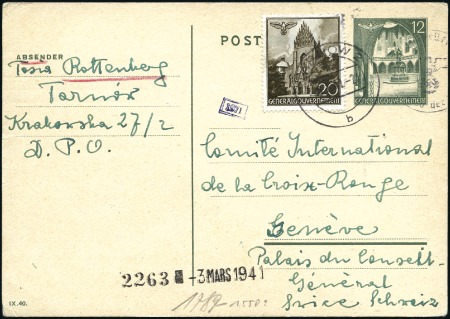 ABSENDER
POST
Tosia Rottenberg
Tarnów
Krakowska 27/2
D.P.O.
20
GENERALGOUVERNEMENT
12
GENERALGOUVERNEMENT
b
Comité International
de la Croix-Rouge
Genève
Palais du Conseil-
Général
Svice Schweiz
2263 -3.MARS 1941
IX.40.